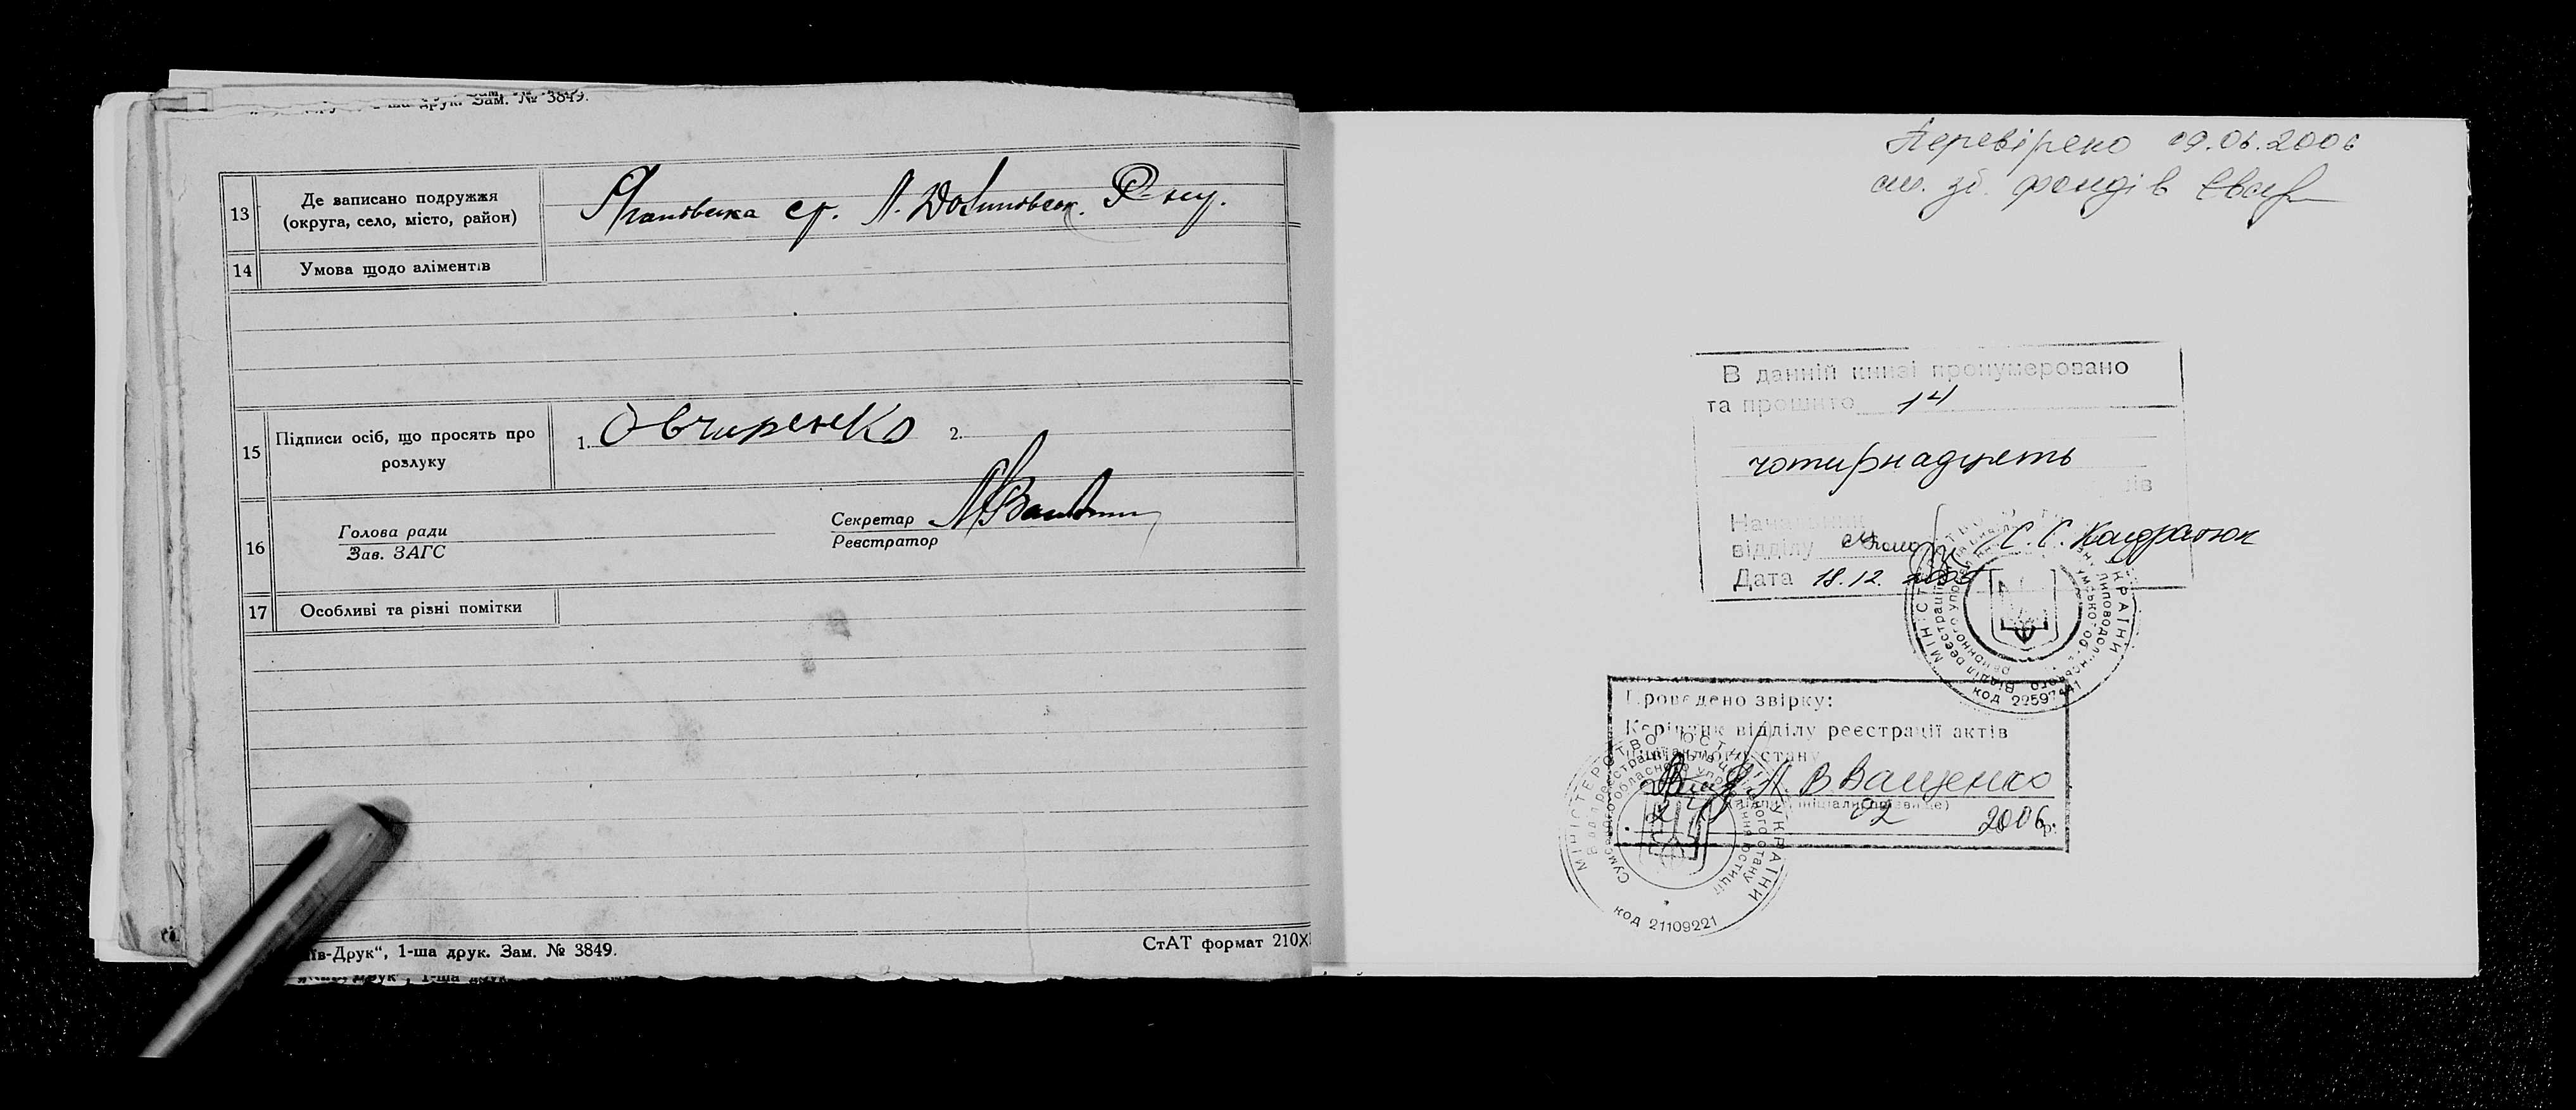 1-ша друк. Зам. № 3849.
13 Де записано подружжя
(округа, село, місто, район)
ср. Р-ну.
14 Умова щодо аліментів
15 Підписи осіб, що просять про
розлуку
1. Овчиренко 2.
16 Голова ради
Зав. ЗАГС
Секретар
Реєстратор
17 Особливі та різні помітки
їв-Друк“, 1-ша друк. Зам. № 3849.
СтАТ формат 210Х
Перевірено 09.06.2006
фондів
В данній книзі пронумеровано
та прошито 14
чотирнадцять
Начальник
відділу С. С. Кондратюк
Дата 18.12.
МІНІСТЕРСТВО ЮСТИЦІЇ УКРАЇНИ
код 22597441
Проведено звірку:
Керівник відділу реєстрації актів
цивільного стану
В Ващенко
(підпис, ініціали, прізвище)
02 2006р.
МІНІСТЕРСТВО ЮСТИЦІЇ УКРАЇНИ
код 21109221